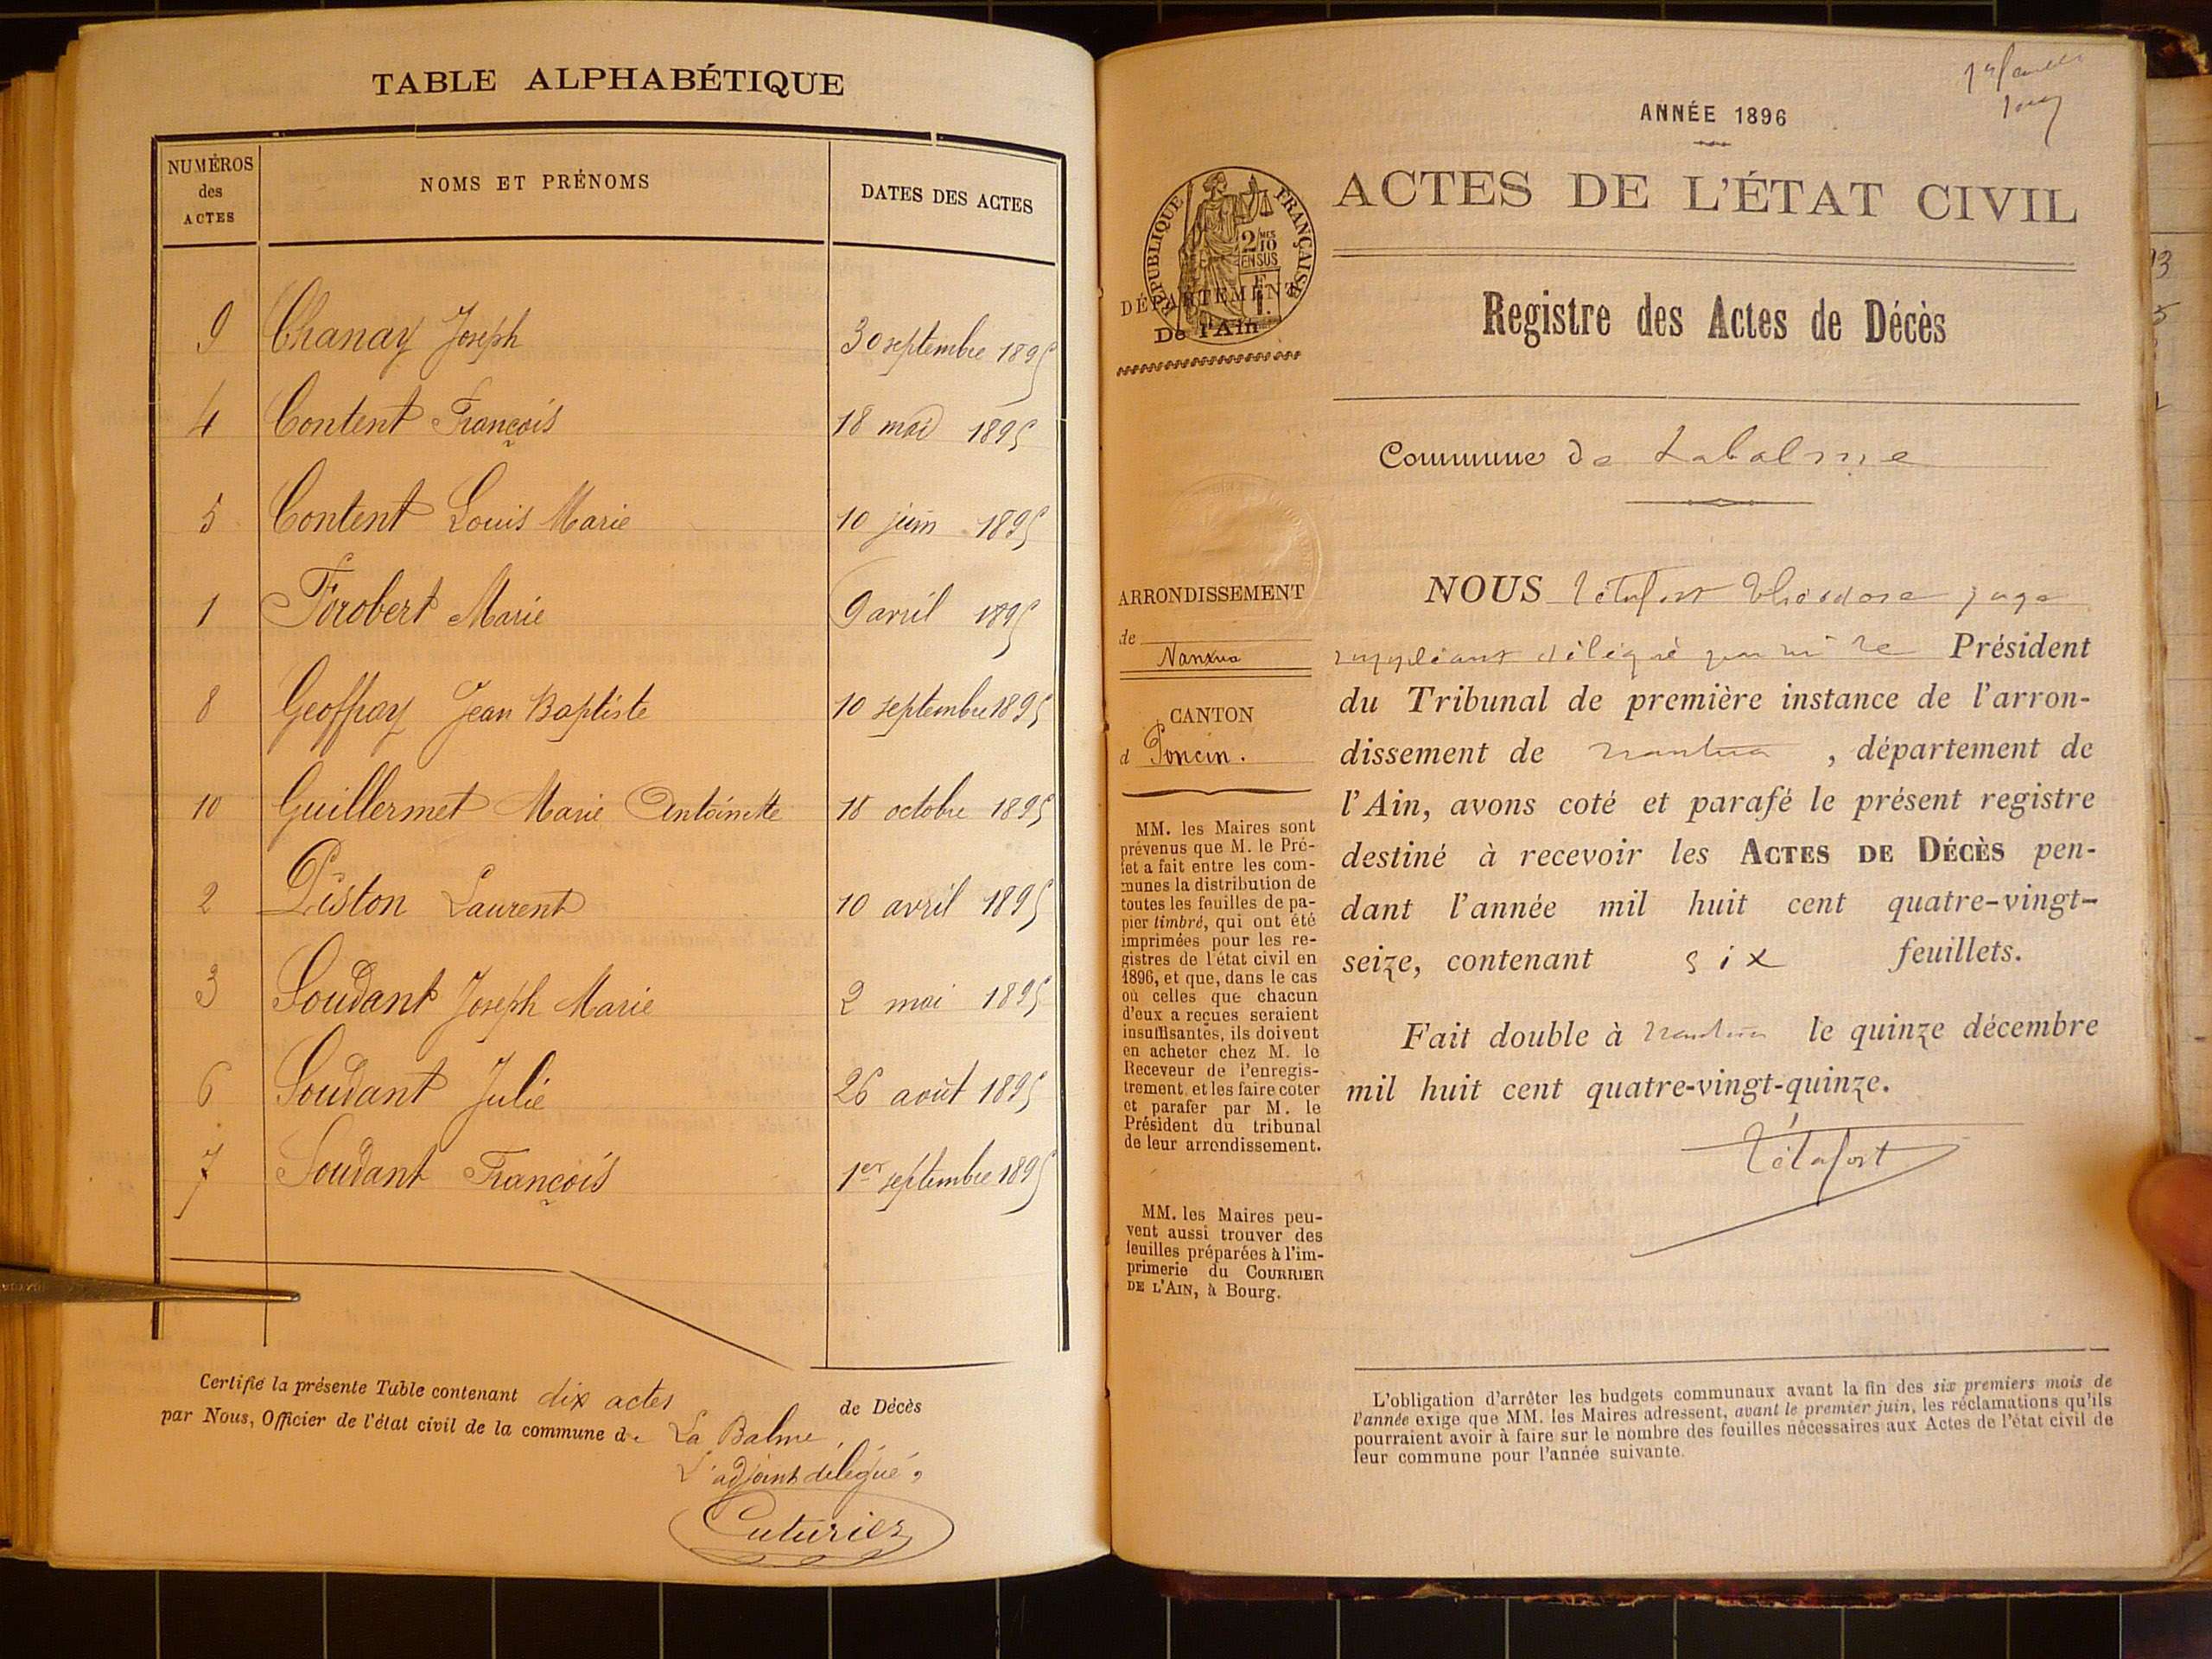 TABLE ALPHABÉTIQUE
NUMÉROS des ACTES
NOMS ET PRÉNOMS
DATES DES ACTES
9 Chanay Joseph 30 septembre 1895
4 Content François 18 mai 1895
5 Content Louis Marie 10 juin 1895
1 Forobert Marie 9 avril 1895
8 Geoffray Jean Baptiste 10 septembre 1895
10 Guillermet Marie Antoinette octobre 1895
2 Piston Laurent 10 avril 1895
3 Soudant Joseph Marie 2 mai 1895
6 Soudant Julie 26 août 1895
7 Soudant François 1er septembre 1895
Certifié la présente Table contenant dix actes de Décès
par Nous, Officier de l'état civil de la commune de La Balme,
L'adjoint délégué,
Cuturier
ANNÉE 1896
ACTES DE L'ÉTAT CIVIL
RÉPUBLIQUE FRANÇAISE
2 MES 10 EN SUS
DÉPARTEMENT
De l'Ain
Registre des Actes de Décès
Commune de Labalme
ARRONDISSEMENT
de
Nantua
CANTON
d Poncin.
MM. les Maires sont
prévenus que M. le Pré-
fet a fait entre les com-
munes la distribution de
toutes les feuilles de pa-
pier timbré, qui ont été
imprimées pour les re-
gistres de l'état civil en
1896, et que, dans le cas
où celles que chacun
d'eux a reçues seraient
insuffisantes, ils doivent
en acheter chez M. le
Receveur de l'enregis-
trement, et les faire coter
et parafer par M. le
Président du tribunal
de leur arrondissement.
MM. les Maires peu-
vent aussi trouver des
feuilles préparées à l'im-
primerie du COURRIER
DE L'AIN, à Bourg.
NOUS Tétafort Théodore juge
suppléant délégué par mr le Président
du Tribunal de première instance de l'arron-
dissement de nantua, département de
l'Ain, avons coté et parafé le présent registre
destiné à recevoir les ACTES DE DÉCÈS pen-
dant l'année mil huit cent quatre-vingt-
seize, contenant six feuillets.
Fait double à nantua le quinze décembre
mil huit cent quatre-vingt-quinze.
Tétafort
L'obligation d'arrêter les budgets communaux avant la fin des six premiers mois de
l'année exige que MM. les Maires adressent, avant le premier juin, les réclamations qu'ils
pourraient avoir à faire sur le nombre des feuilles nécessaires aux Actes de l'état civil de
leur commune pour l'année suivante.